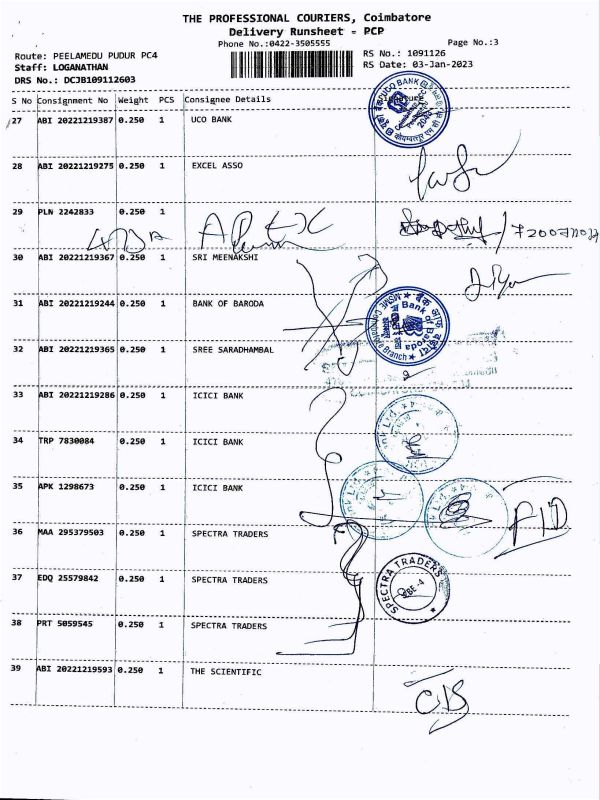 THE PROFESSIONAL COURIERS, Coimbatore
Delivery Runsheet = PCP
Phone No.:0422-3505555
Page No.:3
Route: PEELAMEDU PUDUR PC4
RS No.: 1091126
Staff: LOGANATHAN
RS Date: 03-Jan-2023
DRS No.: DCJB109112603
S No Consignment No Weight PCS Consignee Details Signature
27 ABI 20221219387 0.250 1 UCO BANK
28 ABI 20221219275 0.250 1 EXCEL ASSO
29 PLN 2242833 0.250 1
30 ABI 20221219367 0.250 1 SRI MEENAKSHI
31 ABI 20221219244 0.250 1 BANK OF BARODA
Bank of Baroda
32 ABI 20221219365 0.250 1 SREE SARADHAMBAL
33 ABI 20221219286 0.250 1 ICICI BANK
34 TRP 7830084 0.250 1 ICICI BANK
35 APK 1298673 0.250 1 ICICI BANK
36 MAA 295379503 0.250 1 SPECTRA TRADERS
37 EDQ 25579842 0.250 1 SPECTRA TRADERS
SPECTRA TRADERS
CBE-4
38 PRT 5059545 0.250 1 SPECTRA TRADERS
39 ABI 20221219593 0.250 1 THE SCIENTIFIC